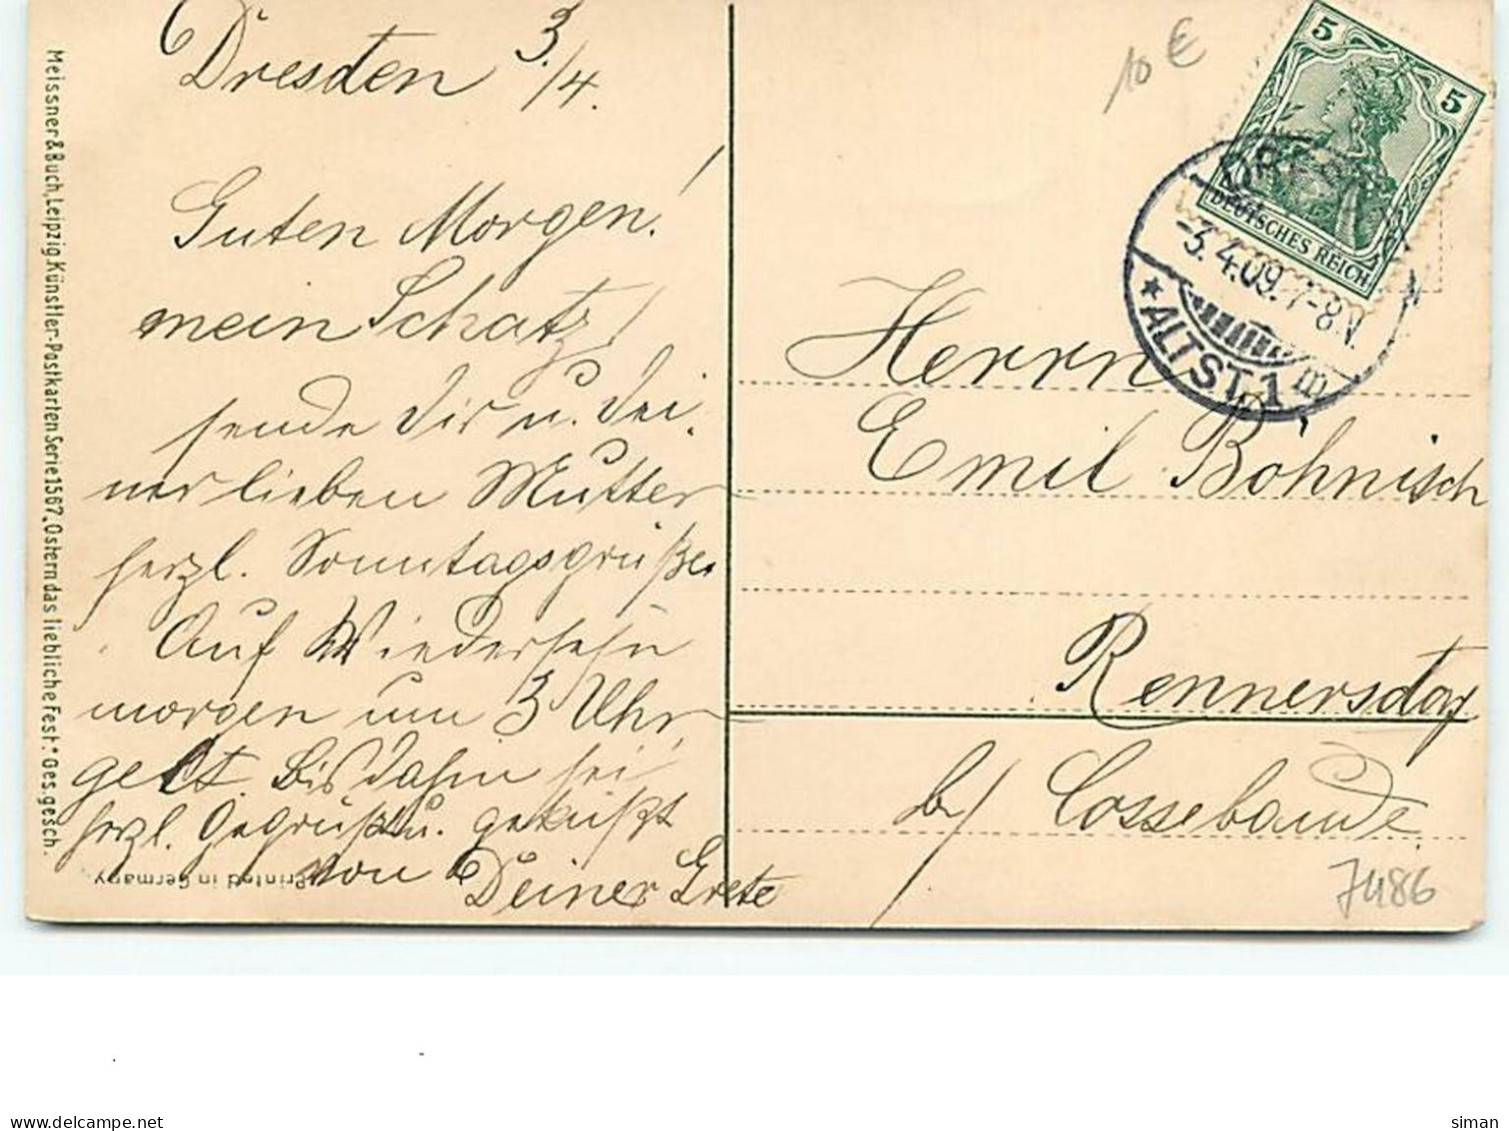 Dresden 3./4.
Guten Morgen!
mein Schatz!
sende Dir u. Dei-
ner lieben Mutter
herzl. Sonntagsgrüße
Auf Wiedersehn
morgen um 3 Uhr
Bis dahin sei
herzl. Gegrüßt u. geküßt
von Deiner Grete
Meissner & Buch, Leipzig. Künstler-Postkarten Serie 1567. "Ostern das liebliche Fest." Ges. gesch.
Printed in Germany
10 €
5
5
DEUTSCHES REICH
DRESDEN
-3.4.09. 7-8.V.
* ALTST. 1 m
Herrn
Emil Böhnisch
Rennersdorf
b/ Cossebaude.
7486
delcampe.net
siman